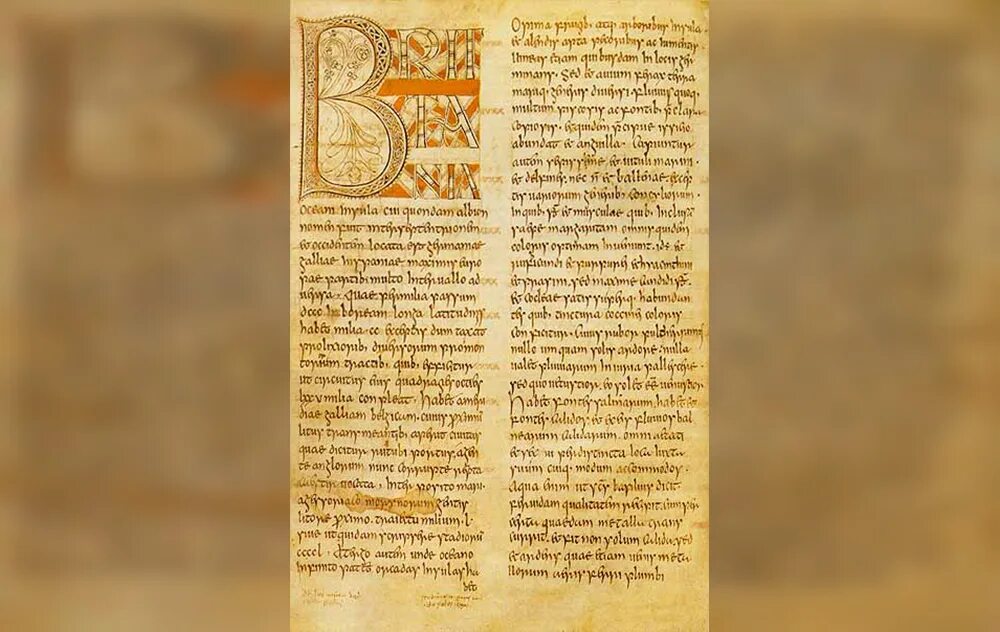 BRIT
TA
NIA
oceani insula cui quondam albion
nomen fuit inter septentrionem
et occidentem locata est germaniae
galliae hispaniae maximis euro
pae partibus multo interuallo ad
uersa. Quae per milia passuum
dccc in boream longa latitudinis
habet milia. cc exceptis dum taxat
prolixioribus diuersorum promon
toriorum tractibus, quibus efficitur
ut circuitus eius quadragies octies
lxxu milia conpleat. Habet a meri
die galliam belgicam. cuius proximum
litus transmeantibus aperit ciuitas
quae dicitur rutubi portus, a gen
te anglorum nunc corrupte
uocata, Interposito mari
a gessoriaco morynorum gentis
litore proximo. traiectu milium. l.
siue ut quidam scripsere stadiorum
ccccl. A tergo autem unde oceano
infinito patet orcadas insulas ha
bet
Opima frugibus. atque arboribus insula.
et alendis apta pecoribus ac iumentis
uineas etiam quibusdam in locis ger
minans, Sed et auium ferax terra
marique, generis diuersi fluuiis quoque,
multum piscosis ac fontibus praeclara
copiosis. et quidem praecipue issicio
abundat et anguilla. Capiuntur
autem saepissime et uituli marini
et delphines. nec non et ballenae. exceptis
uariorum generibus concyliorum
in quibus. sunt et musculae quibus. inclusam
saepe margaritam omnis quidem
coloris optimam inueniunt. id est et
rubicundi et purpurei et hyacinthini
et prasini, sed maxime candidi. sunt.
et cocleae satis superque, habundan
tes quibus. tinctura coccinei coloris
conficitur. Cuius rubor pulcherrimus
nullo umquam solis ardore. nulla
ualet pluuiarum iniuria pallescere
sed quo uetustior. eo solet esse uenustior
Habet fontes salinarum. habet et
fontes calidos. et ex eis fluuios bal
nearum calidarum. omni aetati
et sexui per distincta loca iuxta
suum cuique, modum accommodos.
Aqua enim ut sanctus basilius dicit
feruidam qualitatem recipit. cum per
certa quaedam metalla trans
currit. et fit non solum calida. sed
et ardens quae etiam uenis metal
lorum aeris ferri plumbi